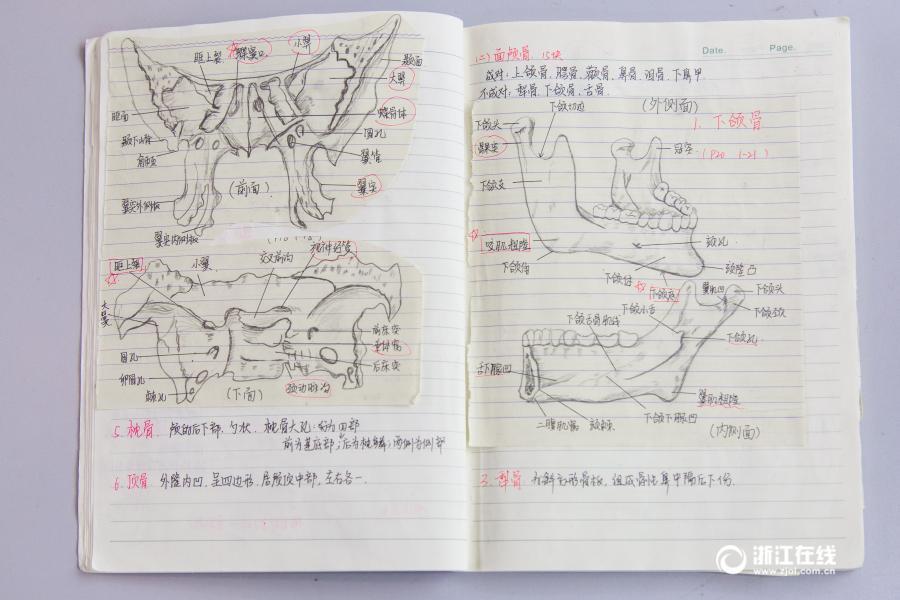 眶上裂
蝶窦口
小翼
颞面
大翼
眶面
蝶骨体
颞下嵴
圆孔
翼管
翼突
(前面)
翼突外侧板
翼突内侧板
眶上裂
小翼
交叉前沟
视神经管
大翼
圆孔
卵圆孔
棘孔
前床突
垂体窝
后床突
颈动脉沟
(下面)
5. 枕骨. 颅的后下部, 勺状. 枕骨大孔:分为四部
前为基底部;后为枕鳞;两侧为侧部
6. 顶骨 外隆内凹, 呈四边形. 居颅顶中部, 左右各一.
Date.
Page.
(二)面颅骨. 15块
成对: 上颌骨、腭骨、颧骨、鼻骨、泪骨、下鼻甲
不成对: 犁骨、下颌骨、舌骨
(外侧面)
1. 下颌骨
(P20 1-21)
下颌切迹
下颌头
髁突
冠突
下颌支
咬肌粗隆
颏孔
下颌角
颏隆凸
下颌体
下颌底
下颌小舌
翼肌凹
下颌头
下颌颈
下颌舌骨肌线
下颌孔
舌下腺凹
翼肌粗隆
二腹肌窝
颏棘
下颌下腺凹
(内侧面)
3. 犁骨 为斜方形骨板, 组成骨性鼻中隔后下份.
浙江在线
www.zjol.com.cn